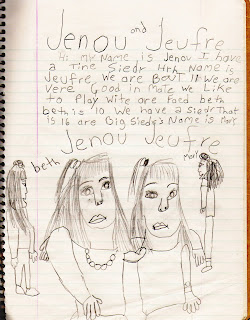 Jenou and Jeufre
Hi My Name is Jenou I have
a Tine Siedr Hth Name is
Jeufre we are Bout 11 we are
Vere Good in Mate we Like
to Play wite are Faed beth
beth is 10 we have a siedr That
is 16 are Big Siedr's Name is Mark
Jenou Jeufre
beth
Mark